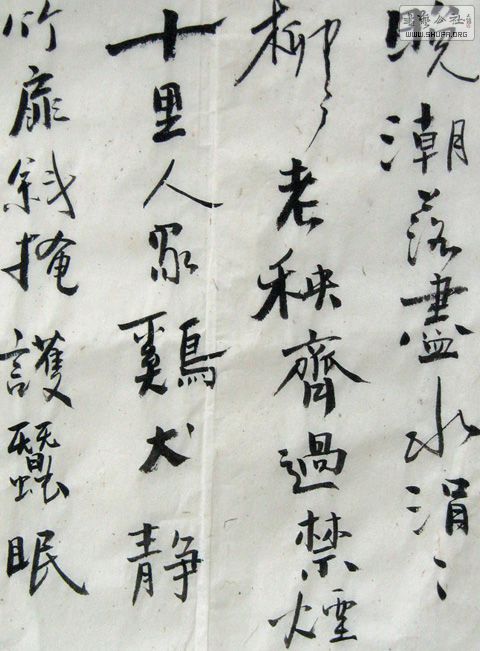 晚潮落盡水涓〻
柳老秧齊過禁煙
十里人家鷄犬静
竹扉斜掩護蠶眠
書藝公社
WWW.SHUFA.ORG